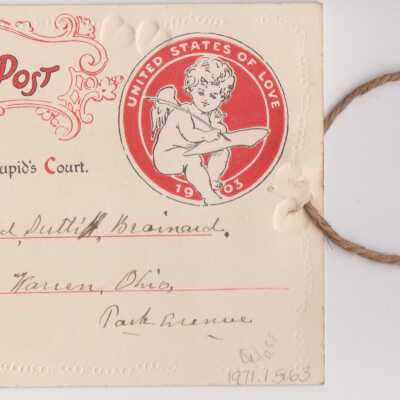 Post
UNITED STATES OF LOVE
1903
upid's Court.
d, Sutliff, Brainard,
Warren, Ohio,
Park Avenue
1971.1.563